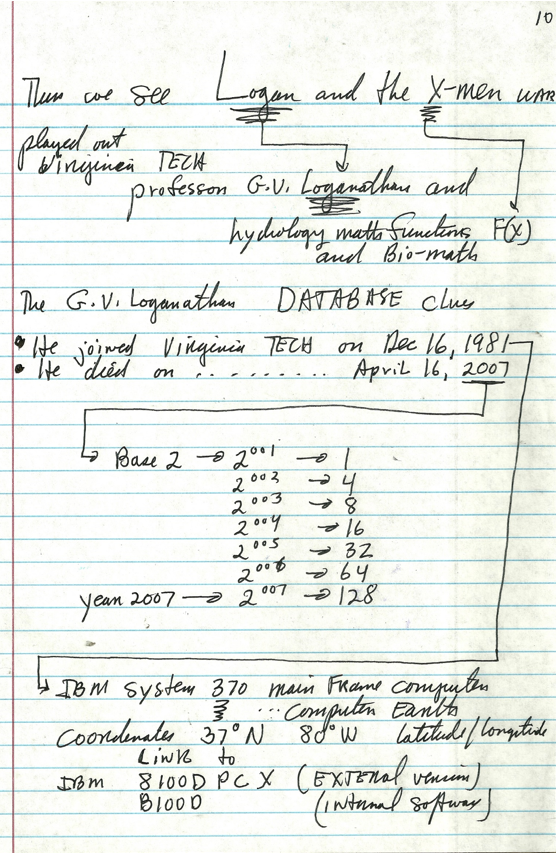 10
Thus we see Logan and the X-men WAR
played out
Virginia TECH
professor G.V. Loganathan and
hydology math functions F(X)
and Bio-math
The G.V. Loganathan DATABASE clues
• He joined Virginia TECH on Dec 16, 1981
• He died on .......... April 16, 2007
Base 2 → 2⁰⁰¹ → 1
2⁰⁰² → 4
2⁰⁰³ → 8
2⁰⁰⁴ → 16
2⁰⁰⁵ → 32
2⁰⁰⁶ → 64
year 2007 → 2⁰⁰⁷ → 128
IBM system 370 main Frame computer
... Computer Earth
Coordenates 37°N 80°W latitude/longitude
LINK to
IBM 8100D PC X (EXTERNAL version)
B100D (internal software)